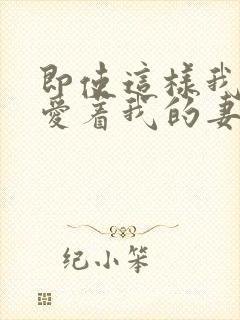 即使這樣我
愛着我的妻
纪小笨